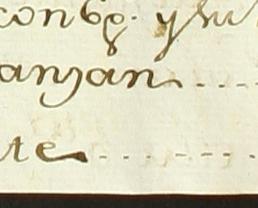 con 6 8. y su
anjan....
te - - - - - -